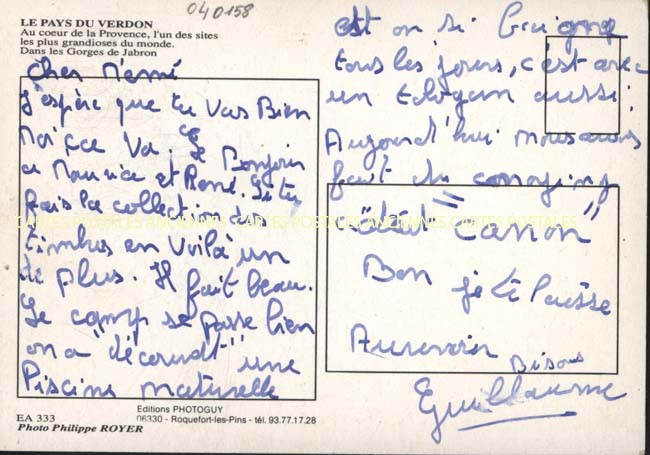 04 0158
LE PAYS DU VERDON
Au coeur de la Provence, l'un des sites
les plus grandioses du monde.
Dans les Gorges de Jabron
Cher Mémé
J'espère que tu vas Bien
Moi ça va. Le Bonjour
a Maurice et René. Si tu
fais la collection de
timbres en Voilà un
de plus. Il fait beau.
Le camp se passe bien
on a "découvert" une
Piscine naturelle
EA 333
Photo Philippe ROYER
Editions PHOTOGUY
06330 - Roquefort-les-Pins - tél. 93.77.17.28
est on si baigne
tous les jours, c'est avec
un tobogan aussi!
Aujourd'hui nous avons
fait du canoying
"c'était Canon"
Bon je te laisse
Aurevoir
Bisous
Guillaume
CARTES POSTALES ANCIENNES CARTES POSTALES ANCIENNES CARTES POSTALES